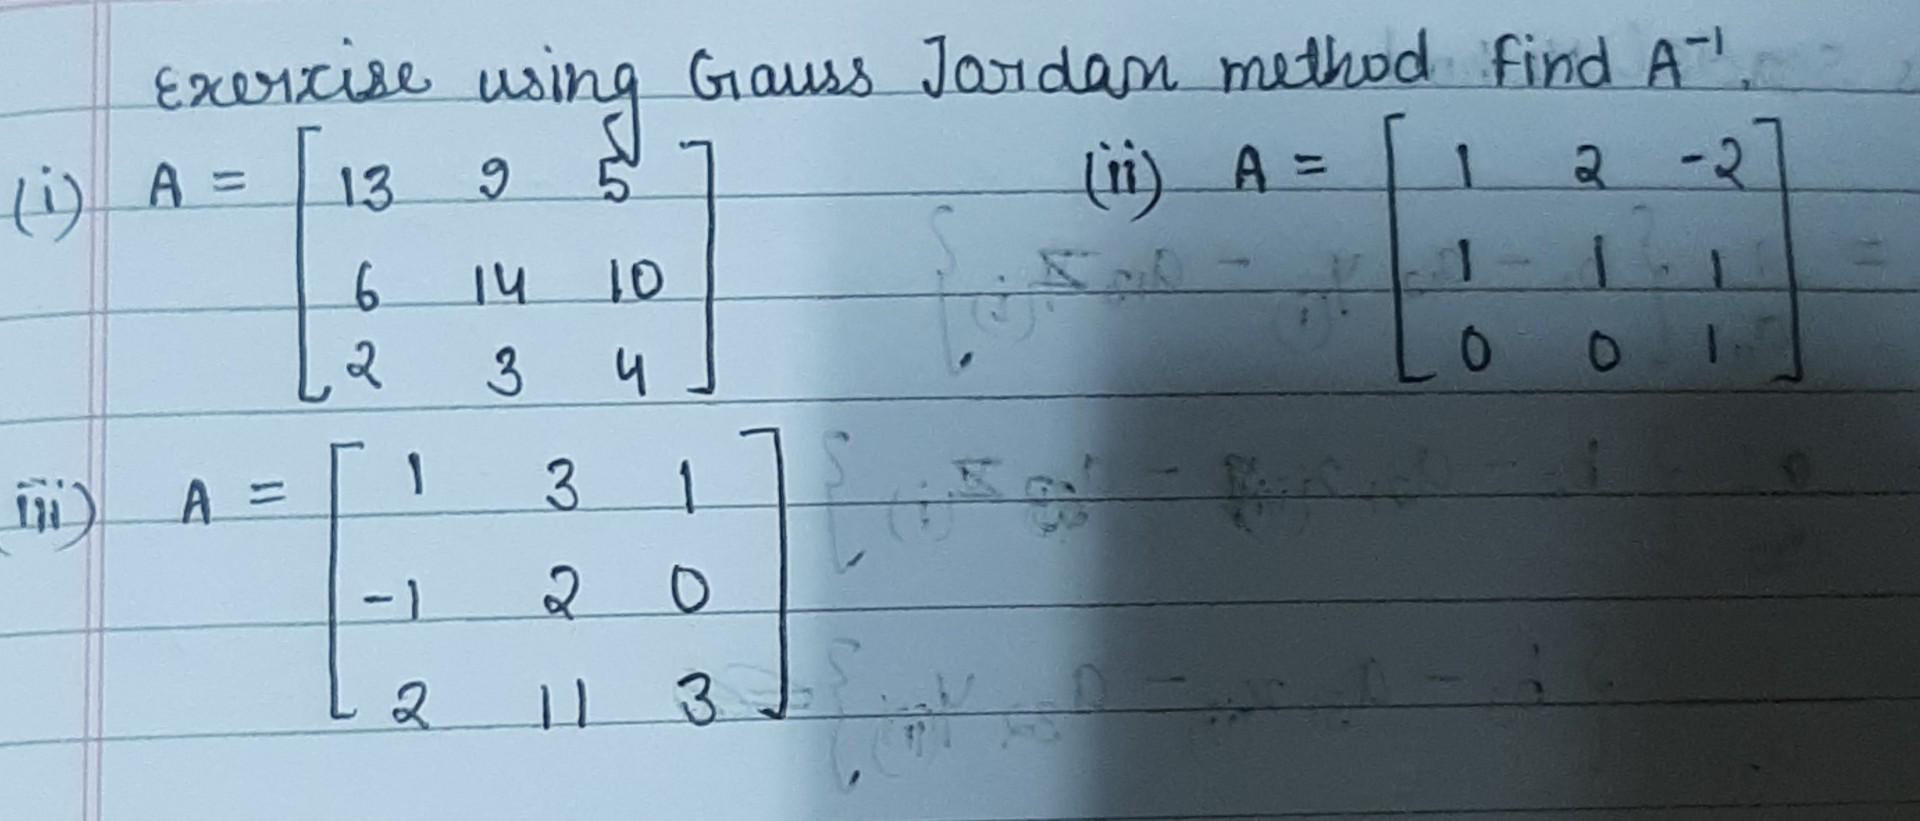 Exercise using Gauss Jordan method find A⁻¹.
(i) A = [ 13 9 5 (ii) A = [ 1 2 -2
6 14 10 1 1 1
2 3 4 ] 0 0 1 ]
iii) A = [ 1 3 1
-1 2 0
2 11 3 ]